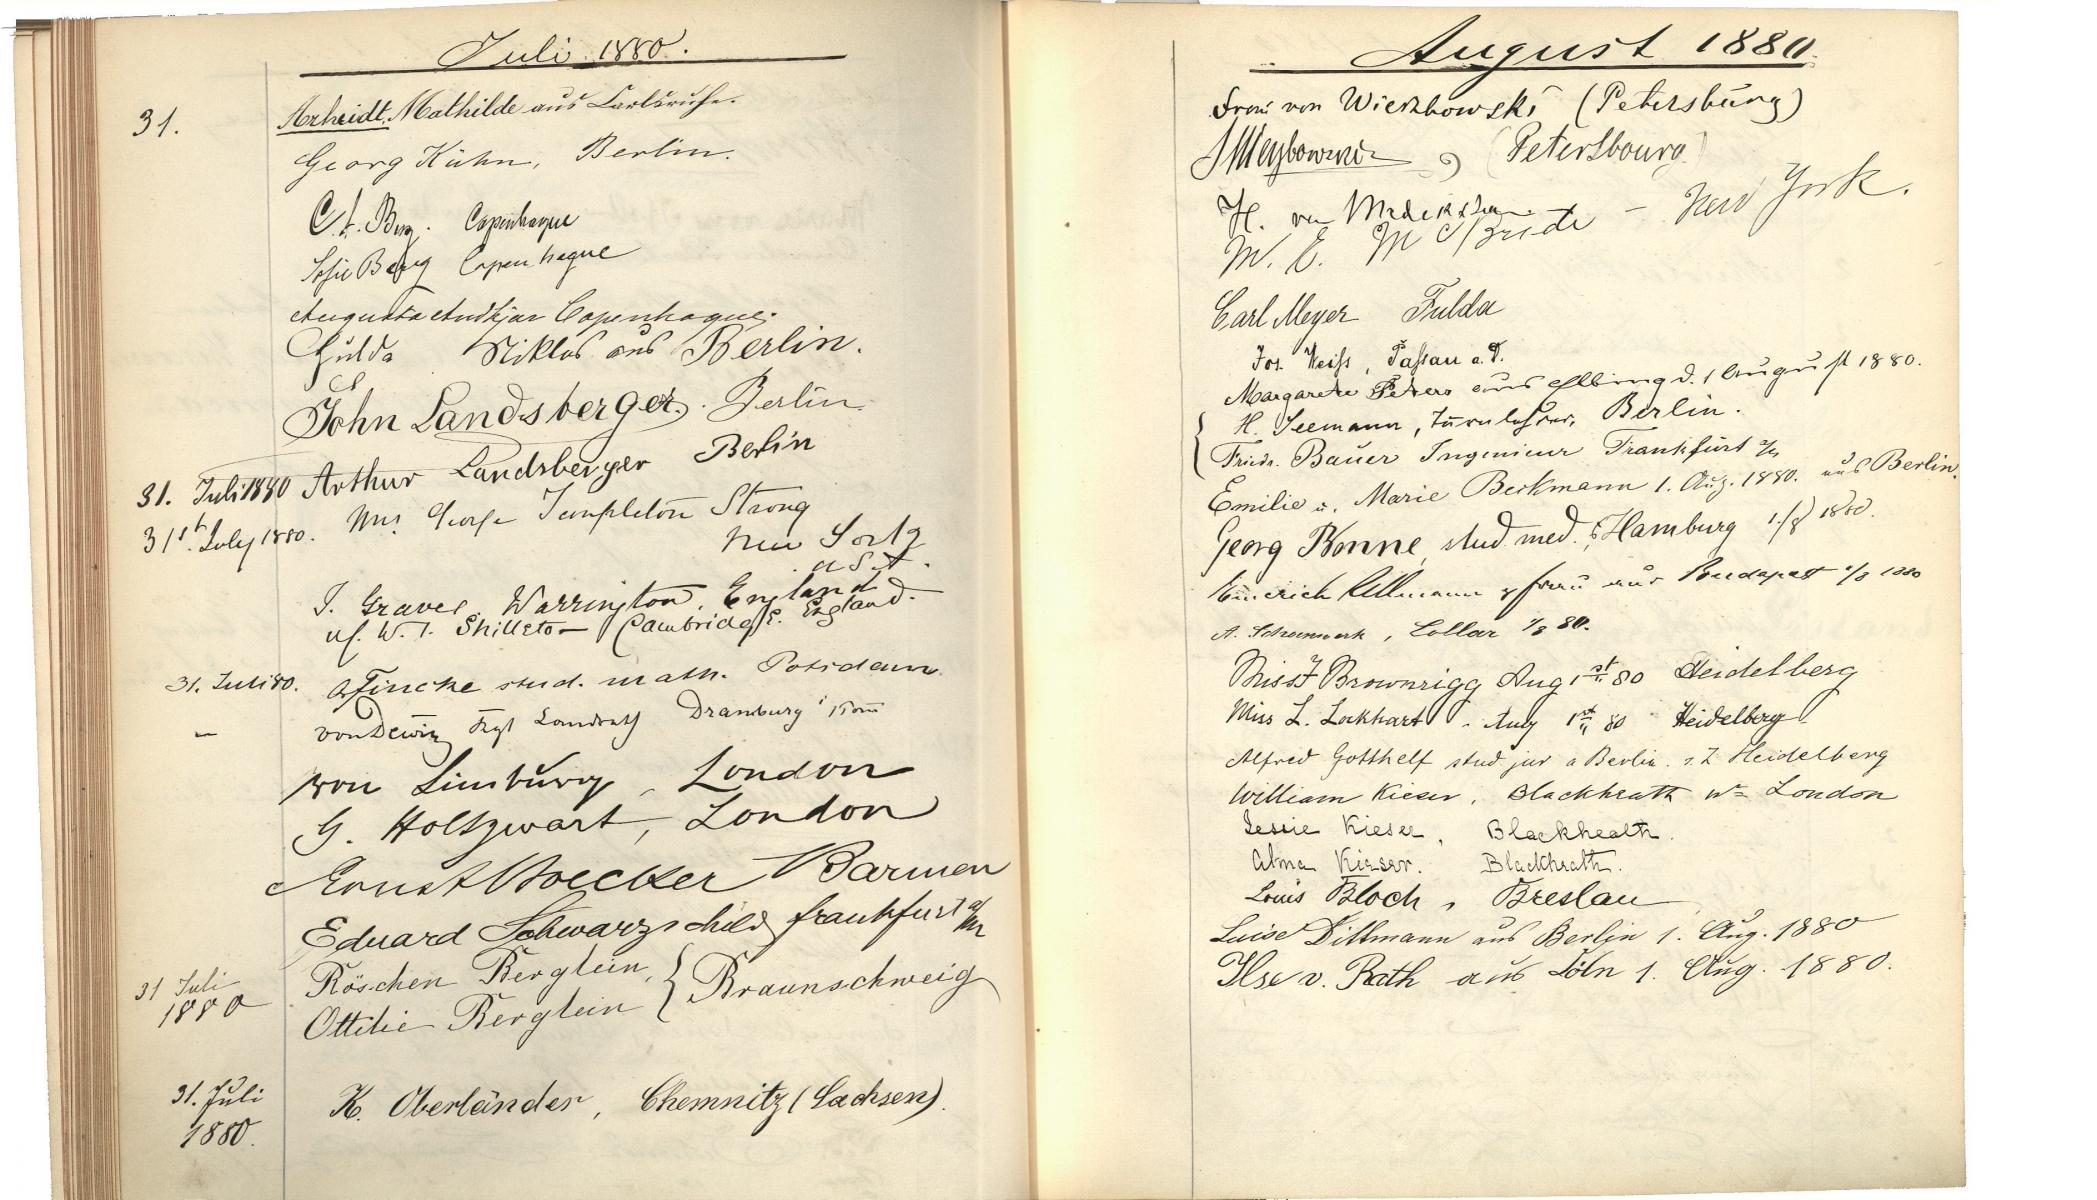 Juli 1880.
31. Arheidt, Mathilde aus Carlsruhe.
Georg Kühn, Berlin.
C. f. Berg. Copenhague
Sofie Berg Copenhague
Augusta Copenhague.
Hulda Niklas aus Berlin.
John Landsberger. Berlin.
31. Juli 1880 Arthur Landsberger Berlin
31st July 1880. Mrs George Templeton Strong
New York
U.S.A.
J. Graves, Warrington, England
W. T. Skilleton Cambridge. England.
31. Juli 80. Fincke stud. math. Potsdam
– von Dewitz Kgl Landrath Dramburg i Pom
von Limburg, London
G. Holtzwart, London
Ernst Boecker Barmen
Eduard Schwarzschild frankfurt a/M
31 Juli
1880
Röschen Berglein,
Ottilie Berglein } Braunschweig
31. Juli
1880.
K. Oberländer, Chemnitz (Sachsen).
August 1880.
Frau von Wierzbowski (Petersburg)
(Petersbourg)
H. von
M. E. McBride – New York.
Carl Meyer Fulda
Jos. Weiss, Passau a. D.
Margarete Peters aus Elbing d. 1 August 1880.
{ H. Seemann, Turnlehrer, Berlin.
Friedr. Bauer Ingenieur Frankfurt a/M
Emilie u. Marie Beckmann 1. Aug. 1880. aus Berlin.
Georg Bonne, stud. med. Hamburg 1/8 1880.
Emerich Ullmann & frau aus Budapest 1/8 1880
A. , Lollar 1/8 80.
Miss F Brownrigg Aug 1st 80 Heidelberg
Miss L. Lockhart. Aug 1st 80 Heidelberg
Alfred Gotthelf stud jur a Berlin. z. Z Heidelberg
William Kieser, Blackheath nr London
Jessie Kieser, Blackheath.
Alma Kieser. Blackheath.
Louis Bloch, Breslau
Luise Dittmann aus Berlin 1. Aug. 1880
Ilse v. Rath aus Cöln 1. Aug. 1880.